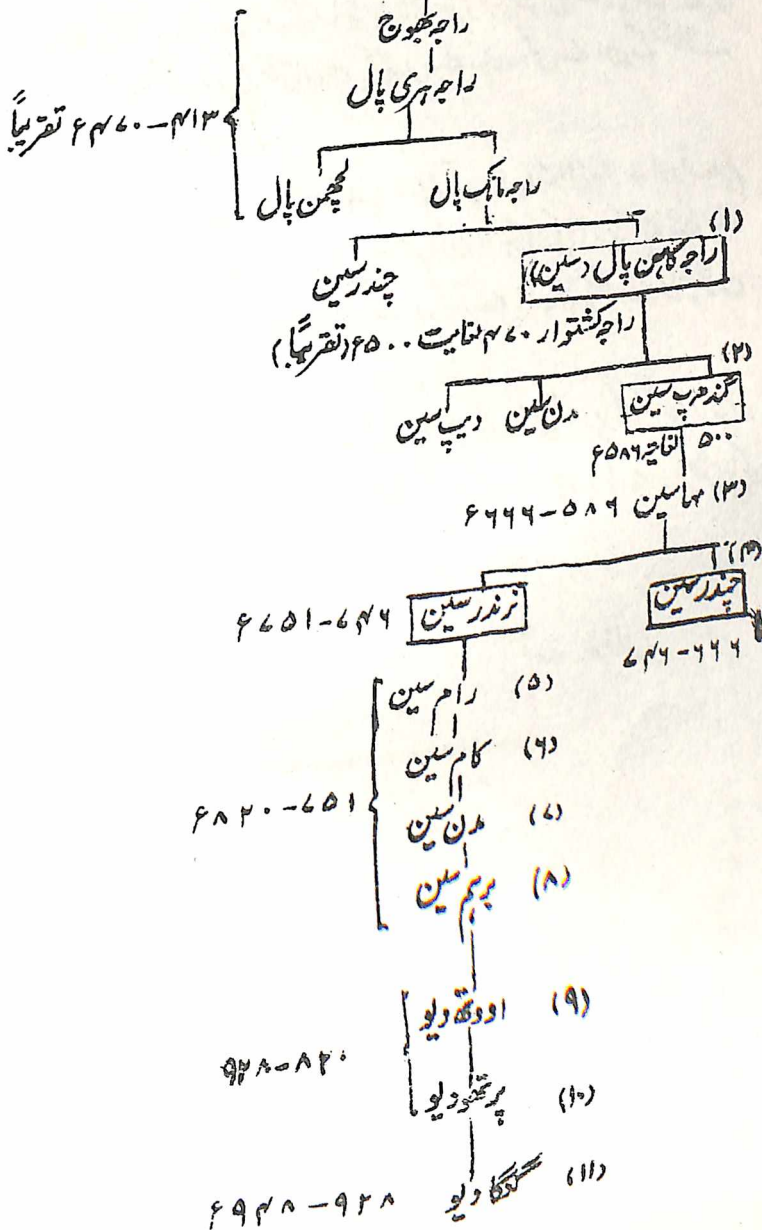 راجہ بھوج
راجہ ہری پال
۴۱۳-۴۷۰ء تقریباً
راجہ مانک پال لچھمن پال
(۱)
راجہ کاہن پال (سین) چندر سین
راجہ کشتوار ۴۷۰ لغایت ۵۰۰ء (تقریباً)
(۲)
گندھرپ سین مدن سین دیپ سین
۵۰۰ لغایتہ ۵۸۶ء
(۳) مہاسین ۵۸۶-۶۶۶ء
(۴)
چندر سین نرندر سین ۷۴۶-۷۵۱ء
۶۶۶-۷۴۶
(۵) رام سین
(۶) کام سین
(۷) مدن سین
۷۵۱-۸۲۰ء
(۸) برہم سین
(۹) اودتھ دیو
۸۲۰-۹۲۸
(۱۰) پرتھو دیو
(۱۱) گنگا دیو ۹۲۸-۹۴۸ء